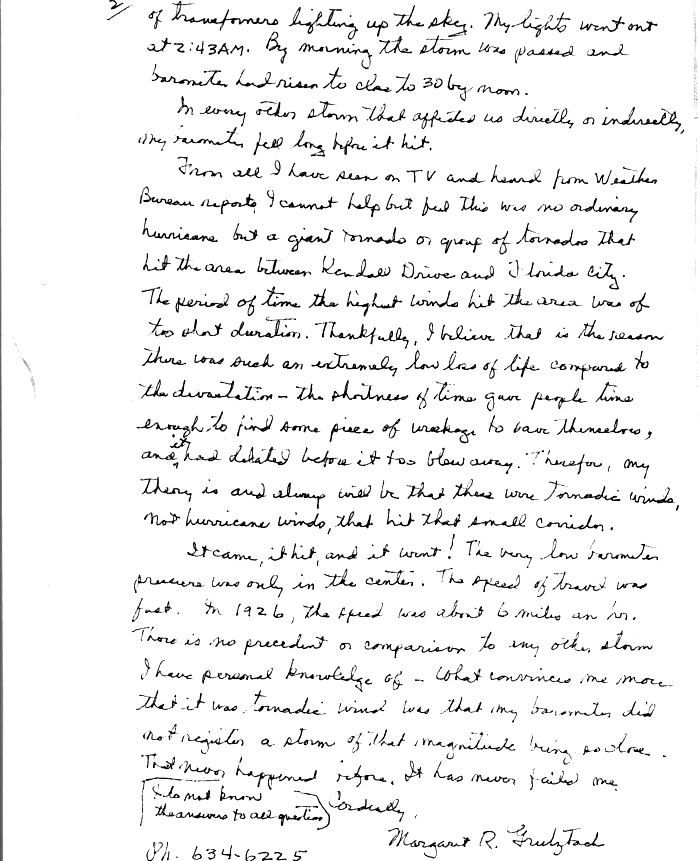 2/
of transformers lighting up the sky. My lights went out
at 2:43AM. By morning the storm was passed and
barometer had risen to close to 30 by noon.
In every other storm that affected us directly or indirectly,
my barometer fell long before it hit.
From all I have seen on TV and heard from Weather
Bureau reports, I cannot help but feel this was no ordinary
hurricane but a giant tornado or group of tornados that
hit the area between Kendall Drive and Florida City.
The period of time the highest winds hit the area was of
too short duration. Thankfully, I believe that is the reason
there was such an extremely low loss of life compared to
the devastation - the shortness of time gave people time
enough to find some piece of wreckage to save themselves,
and it had abated before it too blew away. Therefor, my
theory is and always will be that these were Tornadic winds,
not hurricane winds, that hit that small corridor.
It came, it hit, and it went! The very low barometer
pressure was only in the center. The speed of travel was
fast. In 1926, the speed was about 6 miles an hr.
There is no precedent or comparison to any other storm
I have personal knowledge of - What convinces me more
that it was tornadic wind was that my barometer did
not register a storm of that magnitude being so close.
That never happened before. It has never failed me.
I do not know
the answers to all questions
Cordially,
Margaret R.
Ph. 634-6225